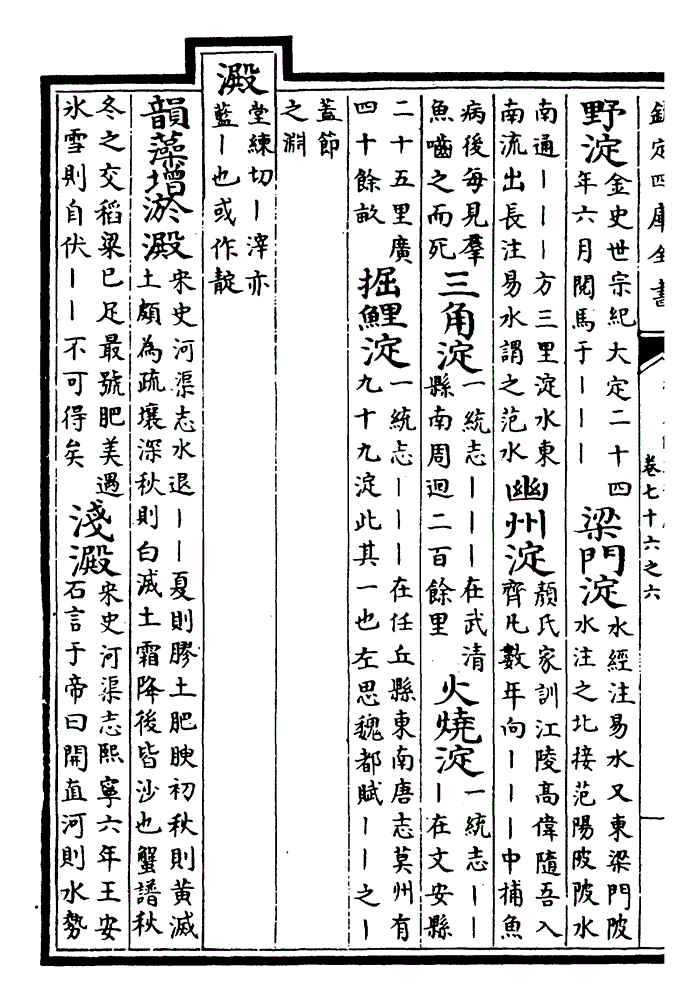 欽定四庫全書 卷七十六之六
野淀金史世宗紀大定二十四年六月閲馬于丨丨丨梁門淀水經注易水又東梁門陂水注之北接范陽陂陂水
南通丨丨丨方三里淀水東南流出長注易水謂之范水幽州淀顔氏家訓江陵高偉隨吾入齊凡數年向丨丨丨中捕魚
病後每見羣魚嚙之而死三角淀一統志丨丨丨在武清縣南周迴二百餘里火燒淀一統志丨丨丨在文安縣
二十五里廣四十餘畝掘鯉淀一統志丨丨丨在任丘縣東南唐志莫州有九十九淀此其一也左思魏都賦丨丨之丨
蓋節之淵
澱堂練切丨滓亦藍丨也或作靛
韻藻增淤澱宋史河渠志水退丨丨夏則膠土肥腴初秋則黄滅土頗為疏壤深秋則白滅土霜降後皆沙也蟹譜秋
冬之交稻粱已足最號肥美遇氷雪則自伏丨丨不可得矣淺澱宋史河渠志熙寧六年王安石言于帝曰開直河則水勢